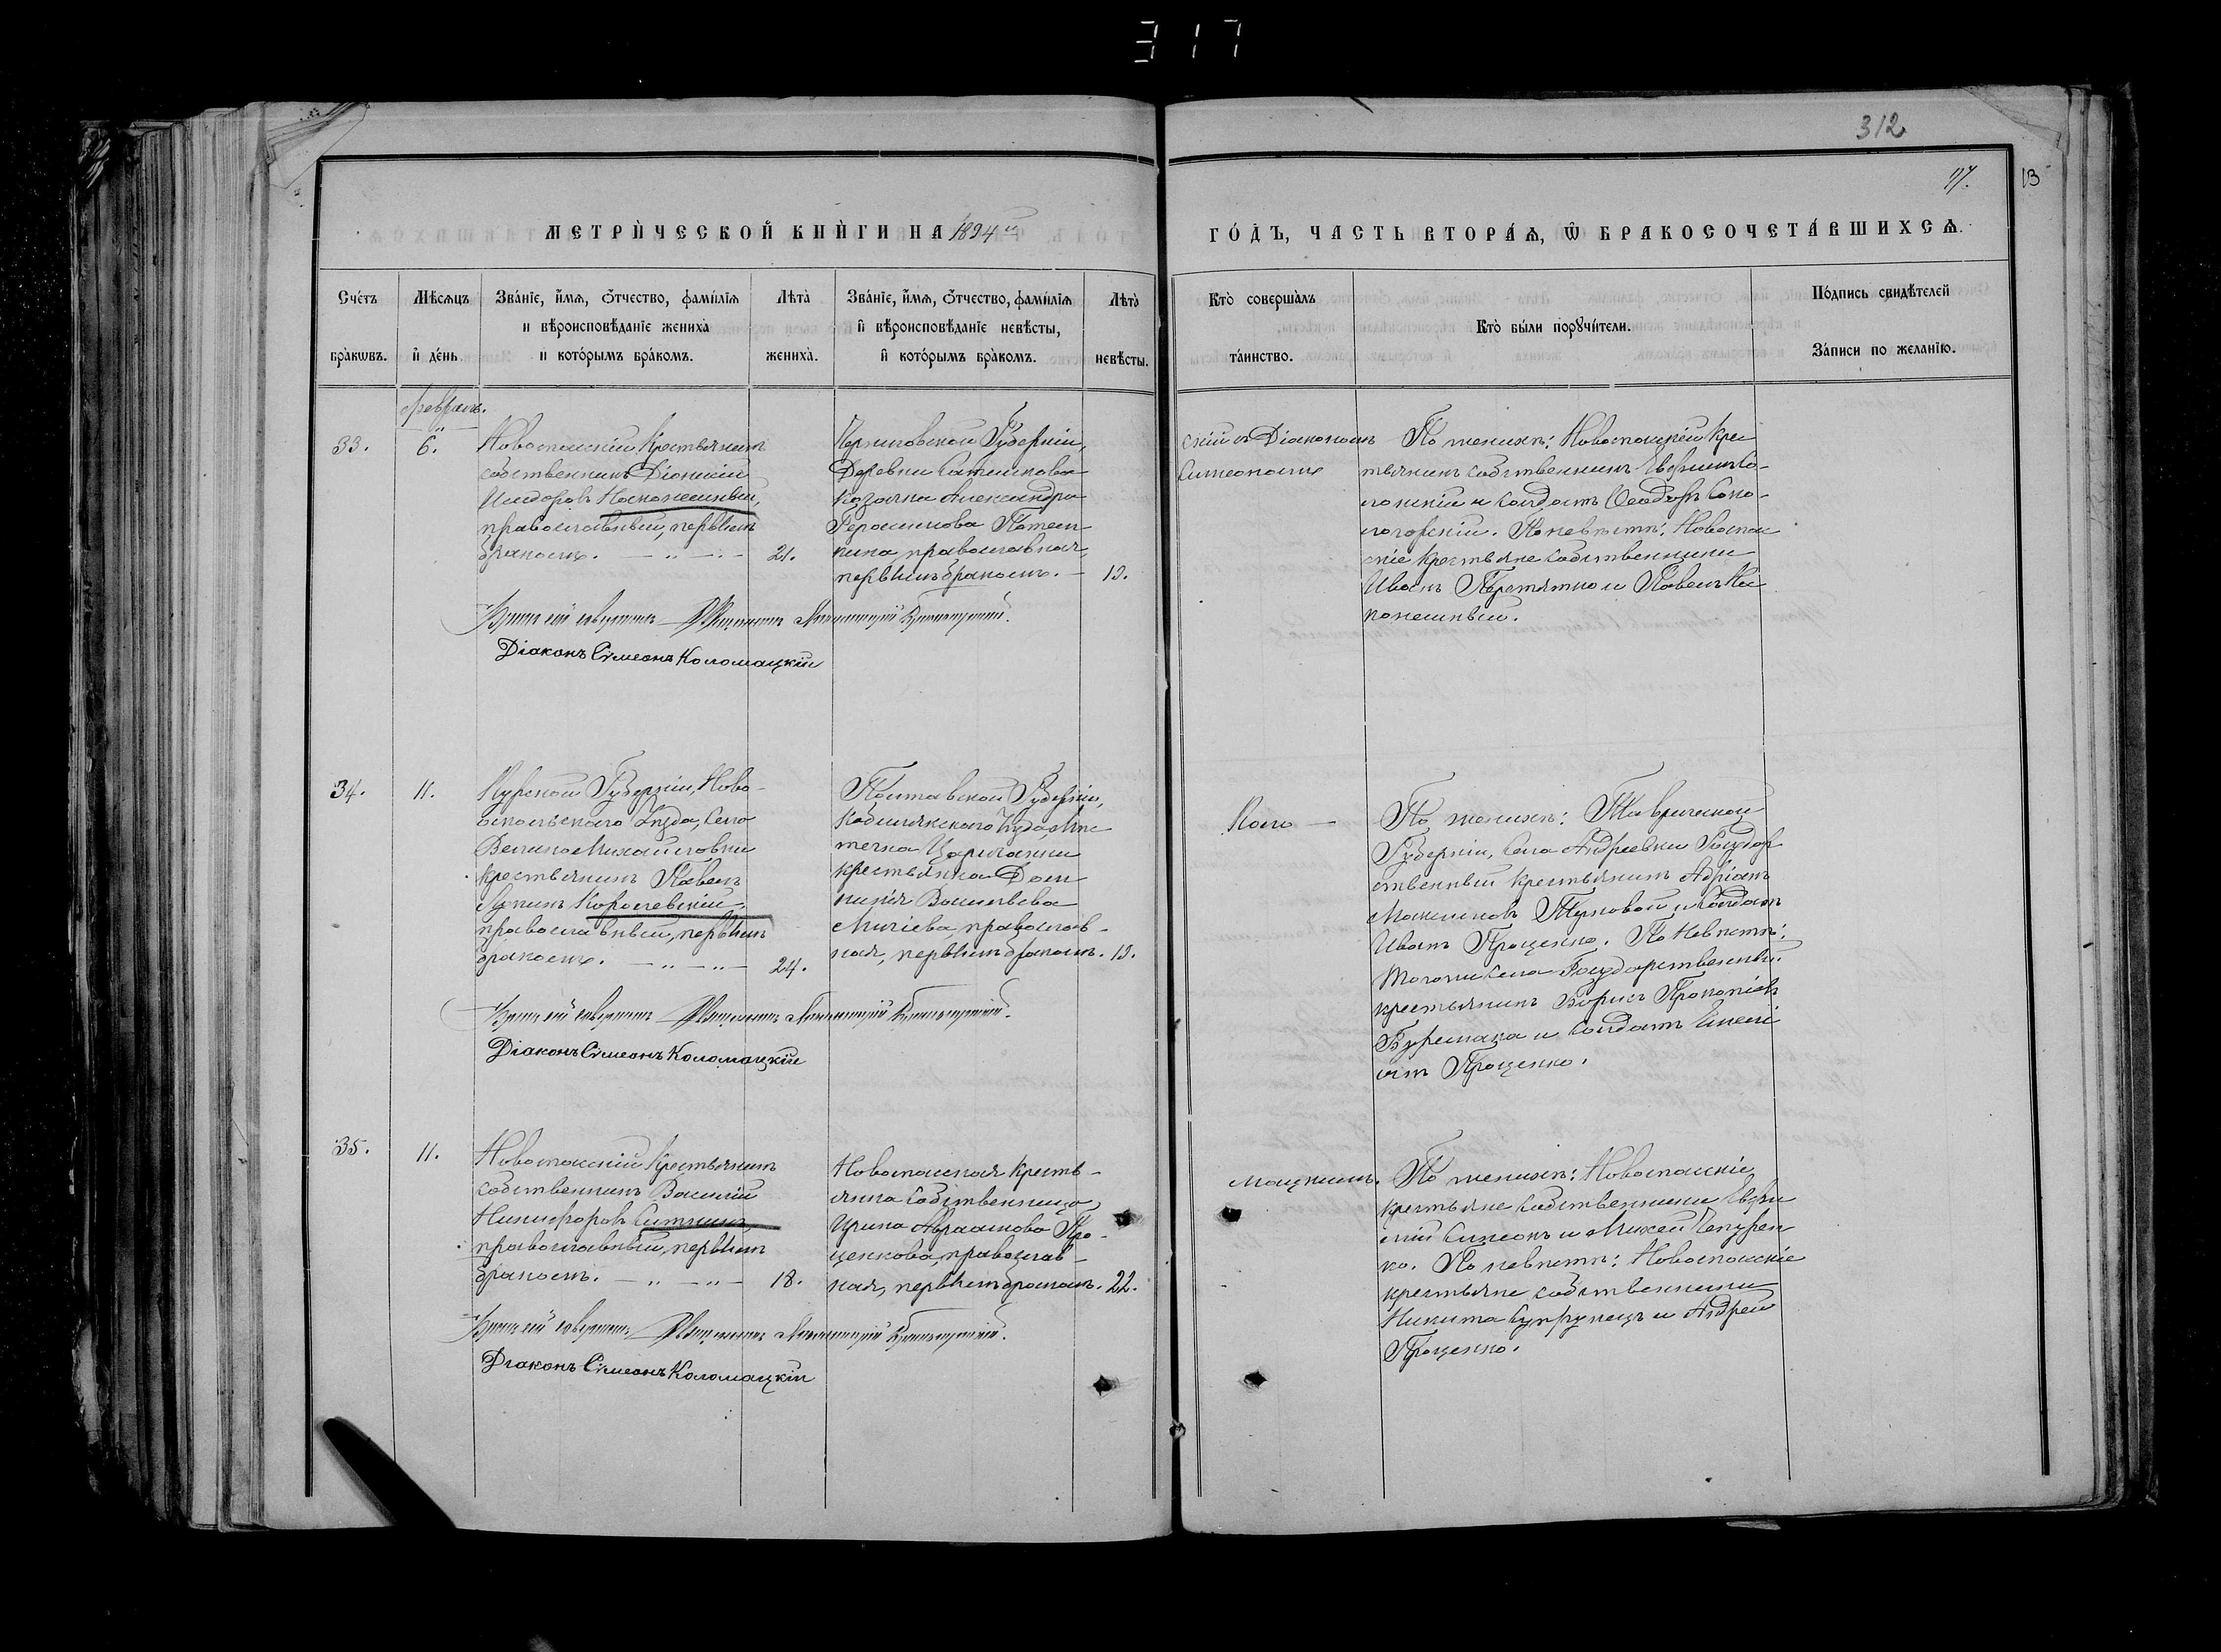 317
312
117.
13
МЕТРИ́ЧЕСКОЙ КНИ́ГИ НА 1894 й
ГО́ДЪ, ЧАСТЬ ВТОРА́Ѧ, Ѿ БРАКОСОЧЕТА́ВШИХСѦ.
Сче́тъ бра́кѡвъ.
Мѣ́сѧцъ и҆ де́нь.
Зва́нїе, и҆́мѧ, ѻ҆́тчество, фами́лїѧ
и вѣроисповѣ́данїе жениха̀
и кото́рымъ бра́комъ.
Лѣ́та жениха̀.
Зва́нїе, и҆́мѧ, ѻ҆́тчество, фами́лїѧ
и҆ вѣроисповѣ́данїе невѣ́сты,
и҆ кото́рымъ бра̀комъ.
Лѣ́та невѣ́сты.
Кто̀ соверша́лъ
та́инство.
Кто̀ бы́ли порꙋчи́тели.
По́дпись свидѣ́телей
За́писи по жела́нїю.
Февраль.
33.
6.
Новоспаскій Крестьянинъ
собственникъ Діонисій
Исидоровъ
православный, первымъ
бракомъ.
21.
Губерніи,
Деревни
козачка Александра
Герасимова
православная,
первымъ бракомъ. —
19.
скій съ Діакономъ
Симеономъ
По женихѣ: Новоспаскій Крес
тьянинъ собственникъ
и Солдатъ Ѳеодоръ Соко-
логорскій. По невѣстѣ: Новоспас
скіе крестьяне собственники
Иванъ Перетятко и Павелъ
Діаконъ Сѵмеонъ Коломацкій
34.
11.
Курской Губерніи, Ново-
оскольскаго Уѣзда, Села
Велико Михайловки
крестьянинъ Павелъ
Лукинъ Королевскій,
православный, первымъ
бракомъ.
24.
Полтавской Губерніи,
Кобеляцкаго Уѣзда Мѣс
течка Царичанки
крестьянка Дом
никія Васильева
православ-
ная, первымъ бракомъ.
19.
Коло —
По женихѣ: Таврической
Губерніи, Села Андреевки Государ
ственный крестьянинъ Адріанъ
Максимовъ и Солдатъ
Иванъ Проценко. По Невѣстѣ:
Тогоже Села Государственный
крестьянинъ Борисъ Прокопіевъ
и Солдатъ
Проценко.
Діаконъ Сѵмеонъ Коломацкій
35.
11.
Новоспаскій Крестьянинъ
собственникъ Василій
Никифоровъ Ситникъ,
православный, первымъ
бракомъ.
18.
Новоспаская Кресть-
янка Собственница
Ирина Авраамова Про-
ценкова, православ-
ная, первымъ бракомъ.
22.
мацкимъ.
По женихѣ: Новоспаскіе
крестьяне собственники
и Михей Чепурен
ко. По невѣстѣ: Новоспаскіе
крестьяне собственники
Никита Супрунецъ и Андрей
Проценко.
Діаконъ Сѵмеонъ Коломацкій